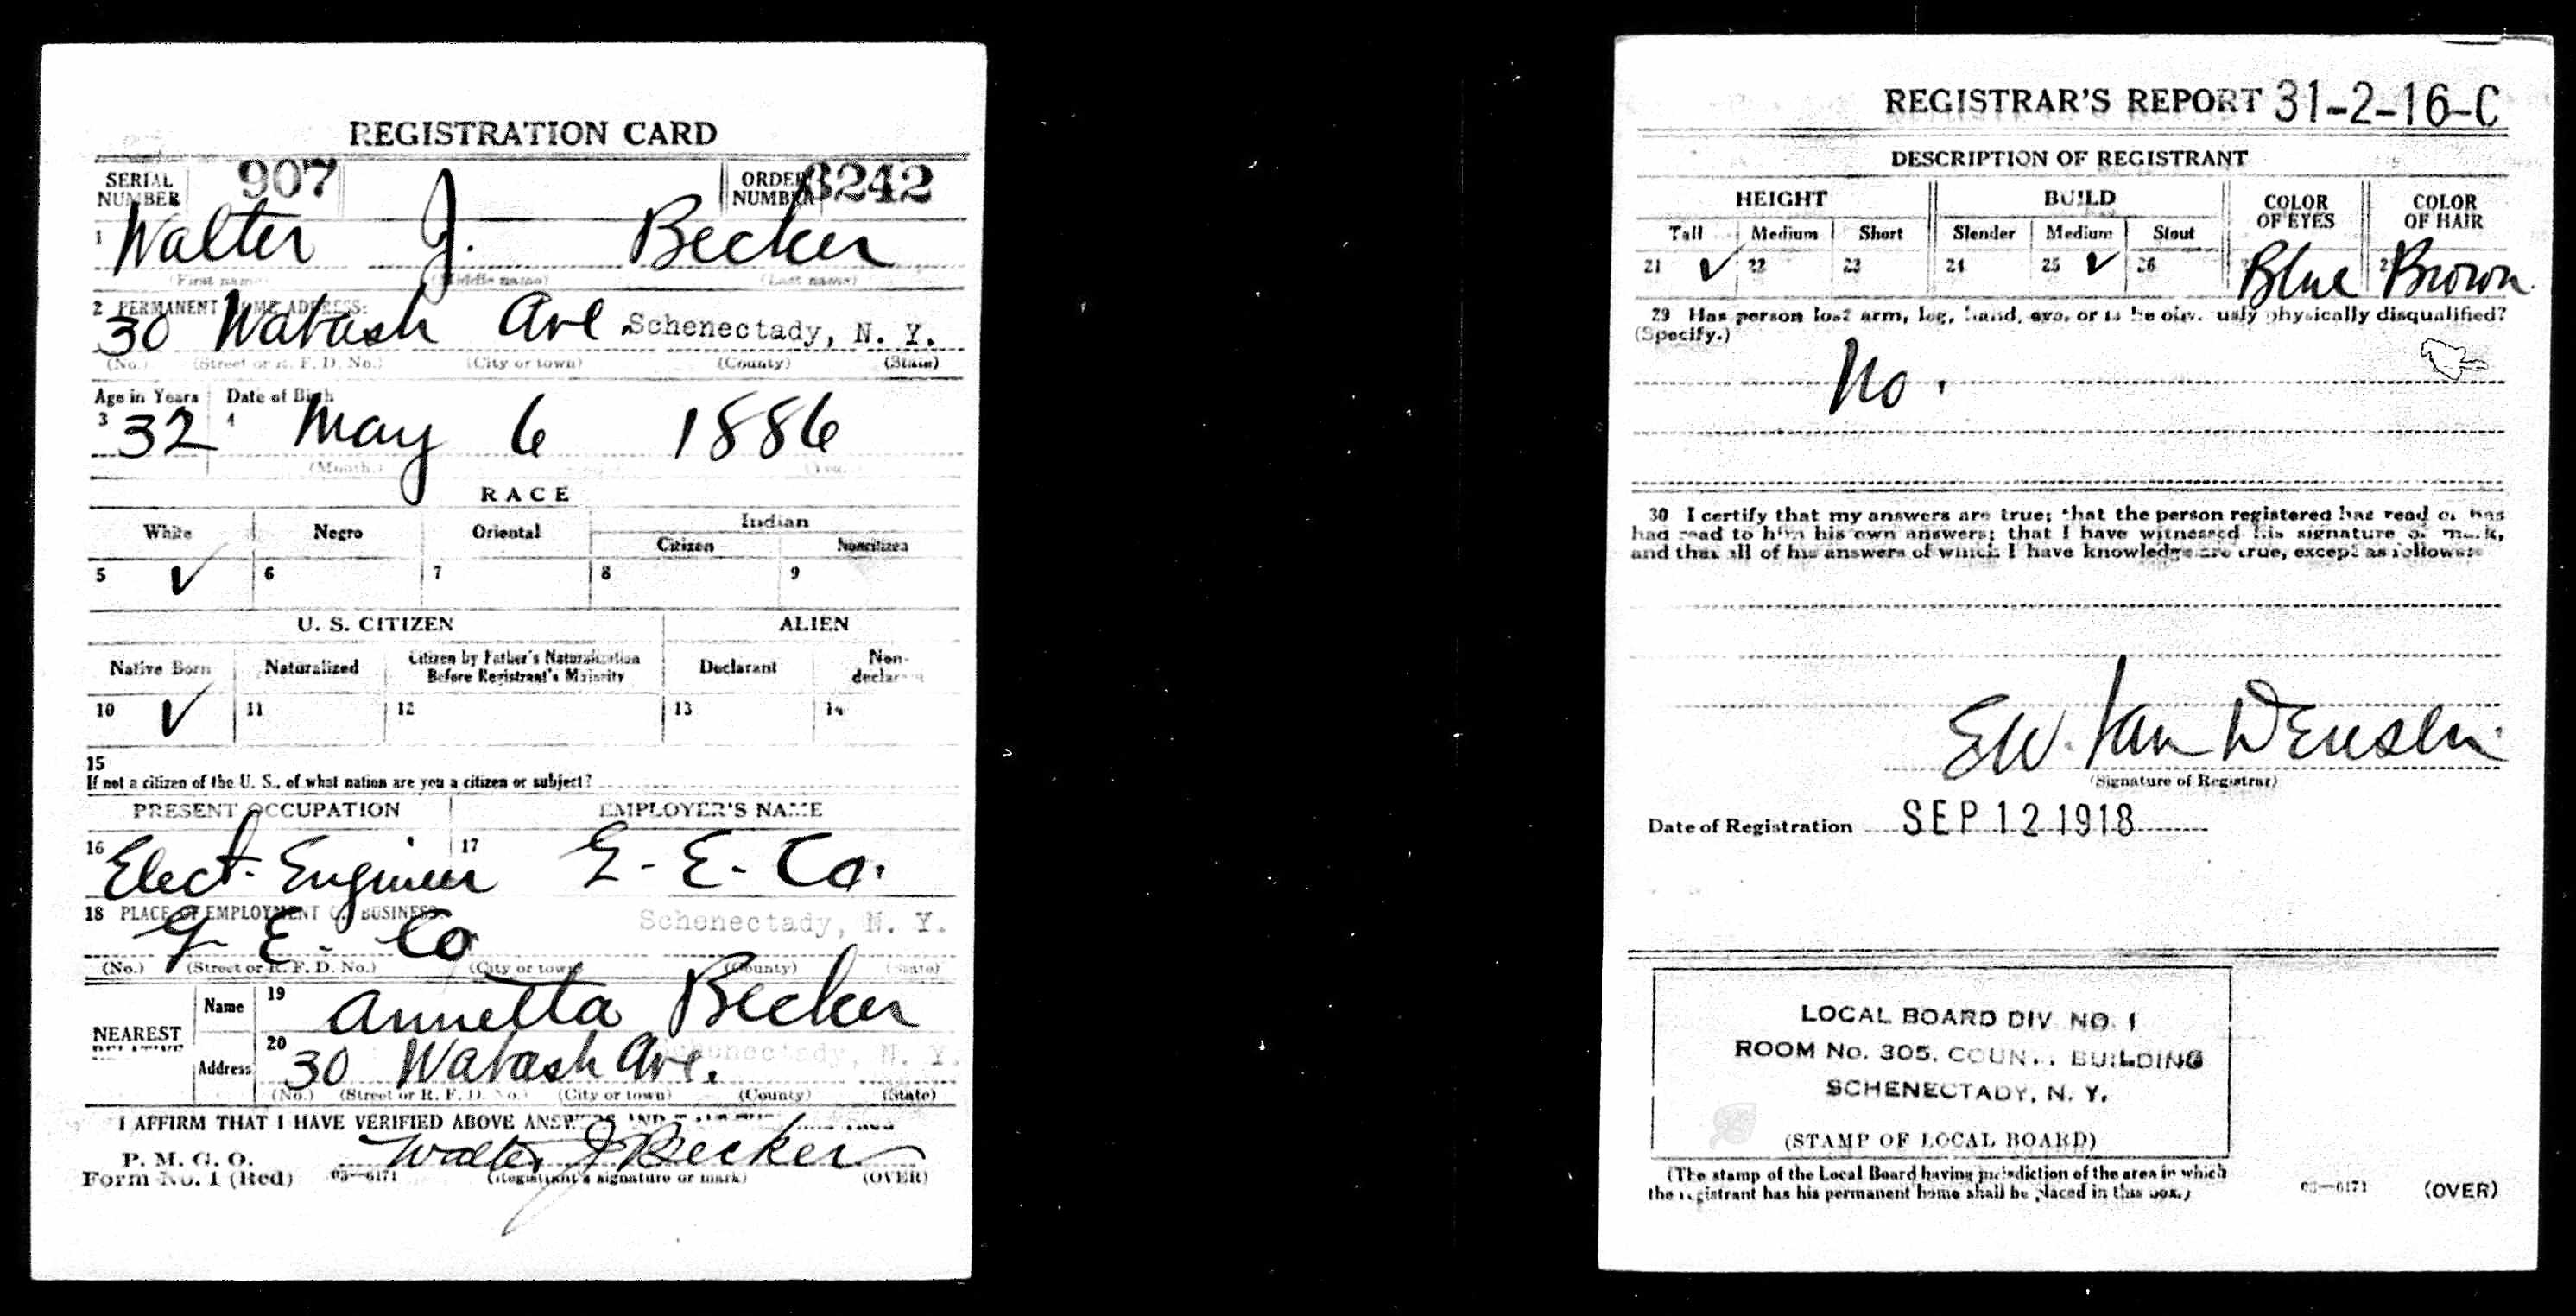 REGISTRATION CARD
SERIAL NUMBER 907 ORDER NUMBER 3242
1 Walter J. Becker
(First name) (Middle name) (Last name)
2 PERMANENT HOME ADDRESS:
30 Wabash Ave. Schenectady, N. Y.
(No.) (Street or R. F. D. No.) (City or town) (County) (State)
Age in Years Date of Birth
3 32 4 May 6 1886
(Month.)
RACE
White Negro Oriental Indian
Citizen Noncitizen
5 ✓ 6 7 8 9
U. S. CITIZEN ALIEN
Native Born Naturalized Citizen by Father's Naturalization Before Registrant's Majority Declarant Non-declarant
10 ✓ 11 12 13 14
15
If not a citizen of the U. S., of what nation are you a citizen or subject?
PRESENT OCCUPATION EMPLOYER'S NAME
16 Elect. Engineer 17 G. E. Co.
18 PLACE OF EMPLOYMENT OR BUSINESS:
G. E. Co Schenectady, N. Y.
(No.) (Street or R. F. D. No.) (City or town) (County) (State)
NEAREST RELATIVE
Name 19 Annetta Becker
Address 20 30 Wabash Ave. Schenectady, N. Y.
(No.) (Street or R. F. D. No.) (City or town) (County) (State)
I AFFIRM THAT I HAVE VERIFIED ABOVE ANSWERS AND
P. M. G. O.
Form No. 1 (Red) 03—6171 Walter J Becker
(Registrant's signature or mark) (OVER)
REGISTRAR'S REPORT 31-2-16-C
DESCRIPTION OF REGISTRANT
HEIGHT BUILD COLOR OF EYES COLOR OF HAIR
Tall Medium Short Slender Medium Stout
21 ✓ 22 23 24 25 ✓ 26 Blue Brown
29 Has person lost arm, leg, hand, eye, or is he obviously physically disqualified?
(Specify.)
No.
30 I certify that my answers are true; that the person registered has read or has
had read to him his own answers; that I have witnessed his signature or mark,
and that all of his answers of which I have knowledge are true, except as follows:
E.W. Van
(Signature of Registrar)
Date of Registration SEP 12 1918
LOCAL BOARD DIV. NO. 1
ROOM No. 305, BUILDING
SCHENECTADY, N. Y.
(STAMP OF LOCAL BOARD)
(The stamp of the Local Board having jurisdiction of the area in which
the registrant has his permanent home shall be placed in this box.)
03—6171 (OVER)